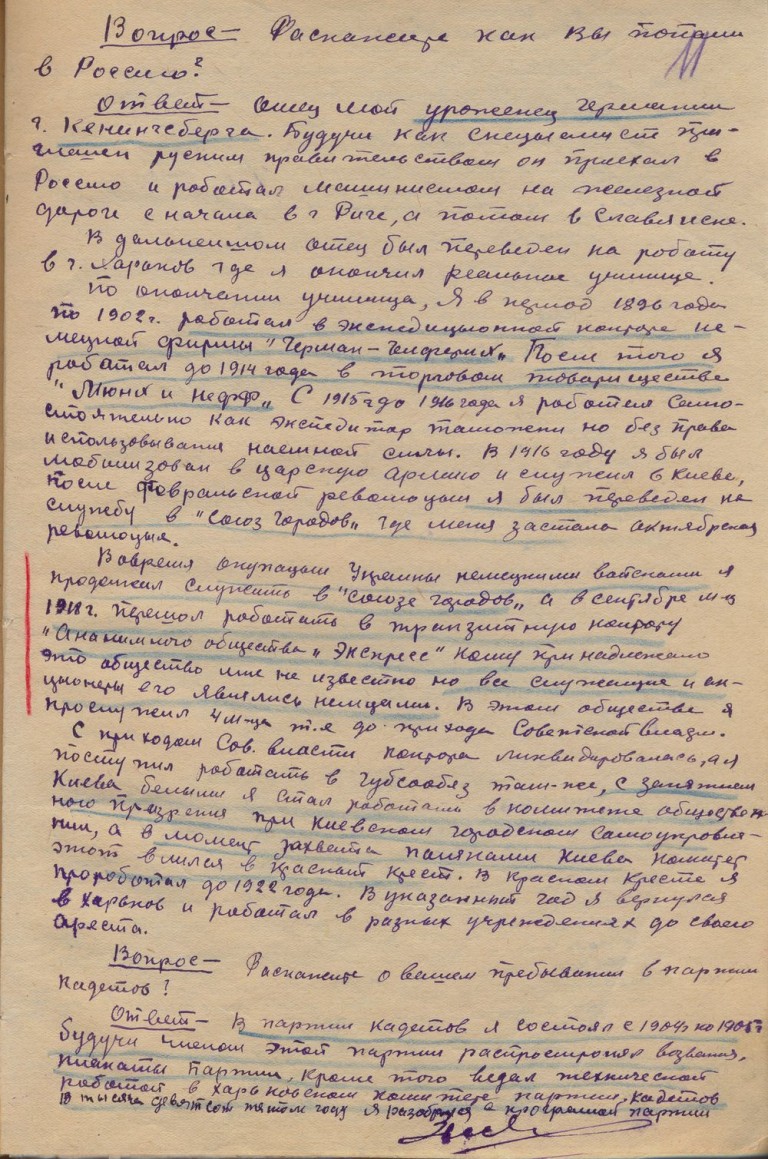 Вопрос – Раскажите как Вы попали
11
в Россию?
Ответ – Отец мой уроженец Германии
г. Кенингсберга. Будучи как специалист при-
глашен руским правительством он приехал в
Россию и работал машинистом на железной
дороге с начала в г Риге, а потом в Славянске.
В дальнейшом отец был переведен на работу
в г. Харьков где я окончил реальное училище.
По окончании училища, я в период 1896 года
по 1902 г. работал в экспедиционной конторе не-
мецкой фирмы "Герман-
После того я
работал до 1914 года в торговом товариществе
"Мюнх и Нефф„ С 1915 г до 1916 года я работал само-
стоятельно как экспедитор таможени но без права
использовывания наемной силы. В 1916 году я был
мобилизован в царскую армию и служил в Киеве,
после Февральской революции я был переведен на
службу в "Союз городов„ где меня застала октябрская
революция.
Вовремя окупации Украины немецкими войсками я
продолжал служить в "Союзе городов„ а в сентябре м-це
1918 г. перешол работать в транзитную контору
"Ананимного общества „Экспресс" кому принадлежало
это общество мне не известно но все служащие и ак-
ционеры его являлись немцами. В этом обществе я
прослужил 4 м-ца т.е до прихода Советской власти.
С приходом Сов. власти контора ликвидировалась, а я
поступил работать в губсобез там-же, с занятием
Киева белыми я стал работать в комитете обществен-
ного призрения при Киевском городском самоуправле-
нии, а в момент захвата паляками Киева комитет
этот влился в Красный крест. В Красном Кресте я
проработал до 1922 года. В указанный год я вернулся
в Харьков и работал в разных учреждениях до своего
ареста.
Вопрос – Раскажите о вашем пребывании в партии
кадетов?
Ответ – В партии кадетов я состоял с 1904 г по 1905 г
будучи членом этой партии распространял возвания,
плакаты партии, кроме того ведал технической
работой в Харьковском комитете партии кадетов
В тысяча девятсот пятом году я разобрался с програмой партии